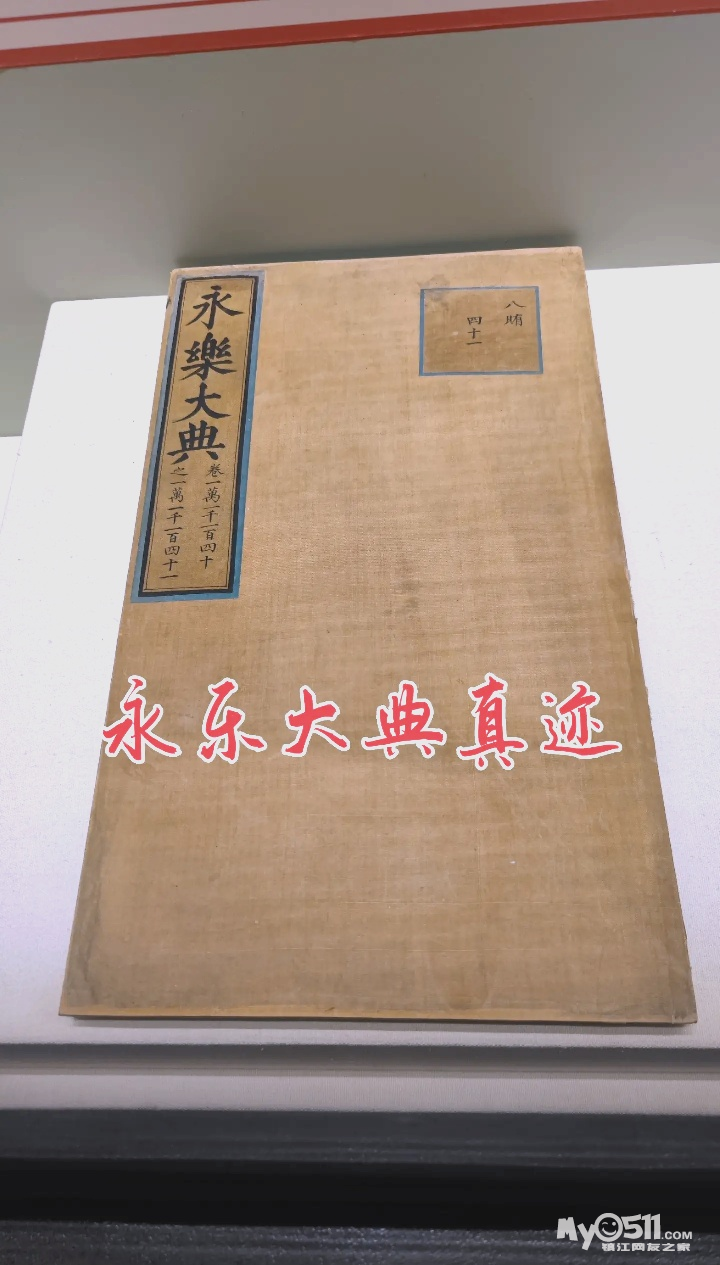 永樂大典
卷一萬一千一百四十
之一萬一千一百四十一
八賄
四十一
永乐大典真迹
My0511.COM
镇江网友之家